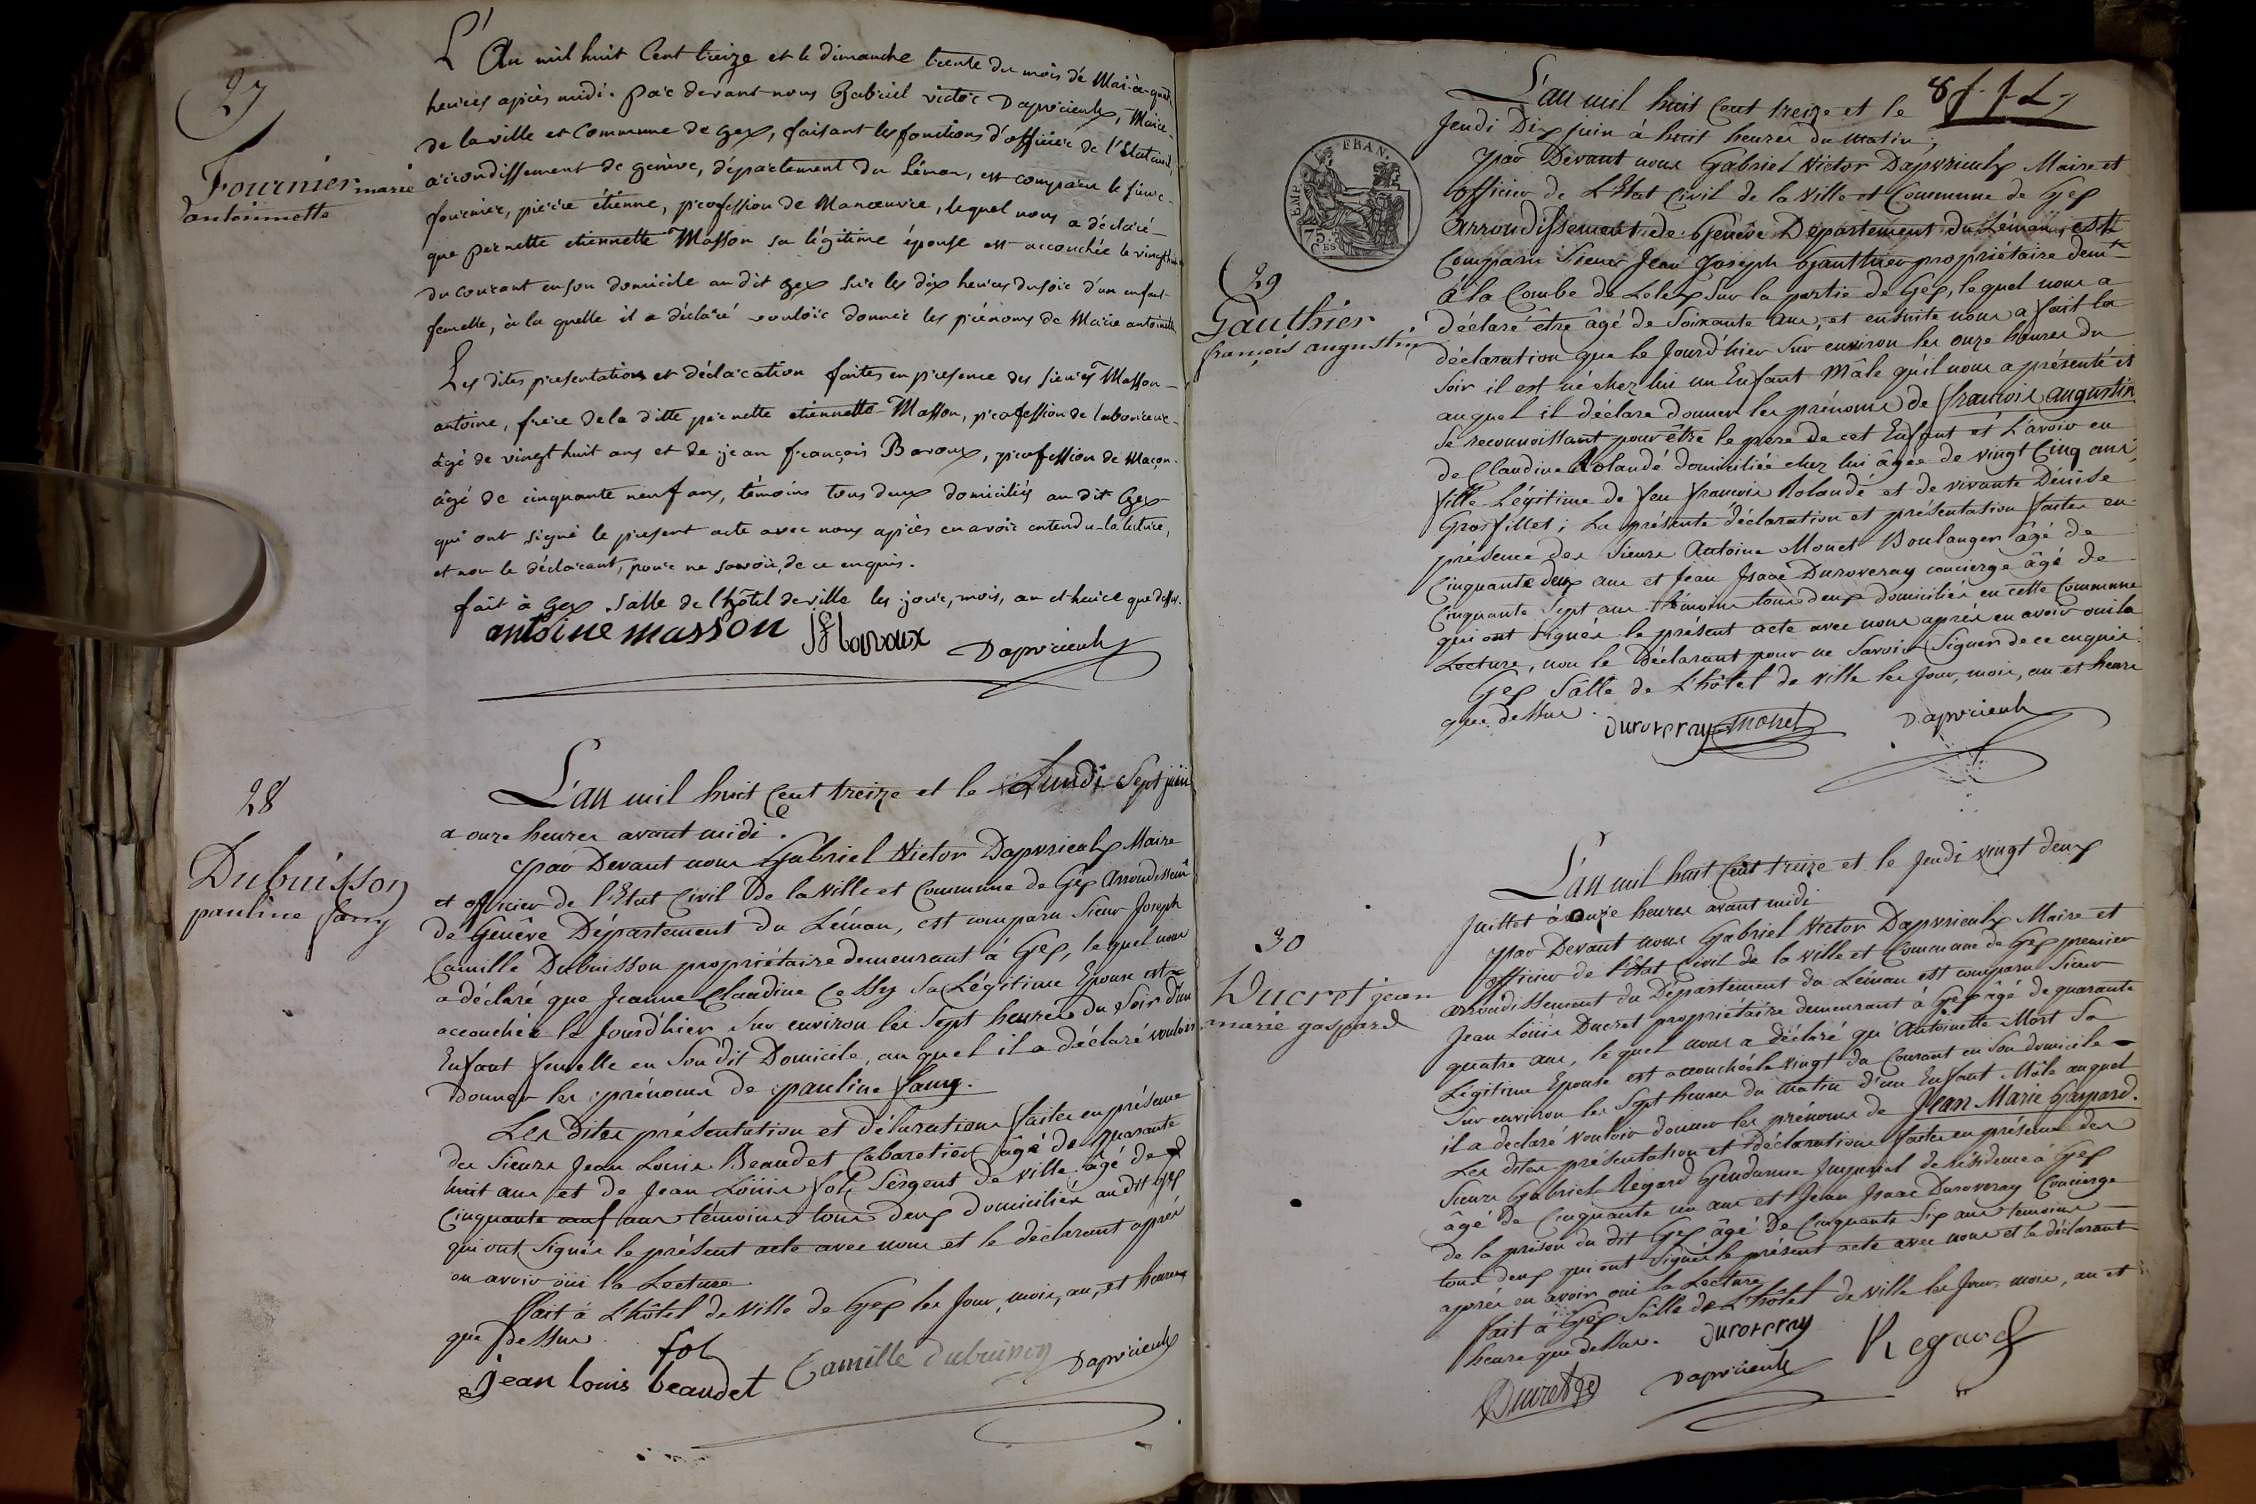 27
Fournier marie
antoinnette
L'An mil huit Cent treize et le dimanche trente du mois de Mai à quatre
heures après midi. par devant nous Gabriel victor Dapvrieulx, Maire
de la ville et Commune de Gex, faisant les fonctions d'officier de l'Etat civil,
arrondissement de genève, département du Léman, est comparu le sieur
fournier, pierre étienne, profession de Manœuvre, lequel nous a déclaré
que pernette etiennette Masson sa légitime épouse est accouchée le vingt huit
du courant en son domicile au dit Gex sur les dix heures du soir d'un enfant
femelle, à la quelle il a déclaré vouloir donner les prénoms de Marie antoinette
Les dites presentations et déclaration faites en presence des sieurs Masson
antoine, frère de la ditte pernette etiennette Masson, profession de laboureur
âgé de vingt huit ans et de jean françois Baroux, profession de Maçon
âgé de cinquante neuf ans, témoins tous deux domiciliés au dit Gex
qui ont signé le present acte avec nous après en avoir entendu la lecture,
et non le déclarant, pour ne savoir, de ce enquis.
fait à Gex Salle de l'hôtel de ville les jour, mois, an et heure que dessus.
antoine masson Jf baroux Dapvrieulx
28
Dubuisson
pauline fany
L'an mil huit Cent treize et le Lundi Sept juin
a onze heures avant midi.
par Devant nous Gabriel Victor Dapvrieulx Maire
et officier de l'Etat Civil de la ville et Commune de Gex Arrondissemt
de Genêve Département du Léman, est comparu Sieur Joseph
Camille Dubuisson propriétaire demeurant à Gex, lequel nous
a déclaré que Jeanne Claudine Cossy Sa Légitime Epouse est
accouchée le Jourd'hier Sur environ les Sept heures du Soir d'un
Enfant femelle en Son dit Domicile, auquel il a déclaré vouloir
donner les prénoms de pauline fany.
Les dites présentation et déclaration faites en présence
des Sieurs Jean Louis Beaudet Cabaretier âgé de quarante
huit ans et de Jean Loüis fol Sergent de ville âgé de
Cinquante neuf ans témoins tous deux domiciliés au dit Gex
qui ont Signés le présent acte avec nous et le déclarant après
en avoir oüi la Lecture
fait à L'hôtel de Ville de Gex les Jour, mois, an, et heures
que dessus.
fol
jean louis beaudet Camille dubuisson Dapvrieulx
8
L'an mil huit Cent treize et le
Jeudi Dix juin à huit heures du matin,
EMP. FRAN.
75 CES
29
Gauthier
françois augustin
par Devant nous Gabriel Victor Dapvrieulx Maire et
officier de L'Etat Civil de la Ville et Commune de Gex
Arrondissement de Genêve Département du Léman, est
Comparu Sieur Jean Joseph Gauthier propriétaire demt
à la Combe de Lelex Sur la partie de Gex, lequel nous a
déclaré être âgé de Soixante ans, et ensuite nous a fait la
déclaration que le Jourd'hier Sur environ les onze heures du
Soir il est né chez lui un Enfant Mâle qu'il nous a présenté et
auquel il déclare donner les prénoms de françois augustin
Se reconnoissant pour être le père de cet Enfant et L'avoir eu
de Claudine Rolandé domiciliée chez lui âgée de vingt Cinq ans,
fille Légitime de feu françois Rolandé et de vivante Dénise
Grosfillet; La présente déclaration et présentation faites en
présence des Sieurs Antoine Monet Boulanger âgé de
Cinquante deux ans et Jean Isaac Duroveray concierge âgé de
Cinquante Sept ans témoins tous deux domiciliés en cette Commune
qui ont Signés le présent acte avec nous après en avoir oui la
Lecture, non le Déclarant pour ne Savoir Signer de ce enquis.
Gex Salle de L'hôtel de ville les Jour, mois, an et heure
que dessus.
duroveray monet Dapvrieulx
30
Ducret jean
marie gaspard
L'an mil huit Cent treize et le Jeudi vingt deux
Juillet à onze heures avant midi
par Devant nous Gabriel Victor Dapvrieulx Maire et
officier de l'Etat Civil de la ville et Commune de Gex premier
arrondissement du Département du Léman est comparu Sieur
Jean Loüis Ducret propriétaire demeurant à Gex âgé de quarante
quatre ans, lequel nous a déclaré qu'Antoinette Mort Sa
Légitime Epouse est accouchée le vingt du Courant en Son domicile
Sur environ les Sept heures du matin d'un Enfant Mâle auquel
il a déclaré vouloir donner les prénoms de Jean Marie Gaspard.
Les dites présentation et déclaration faites en présence des
Sieurs Gabriel Régard Gendarme Impérial de résidence à Gex
âgé de Cinquante un ans et Jean Isaac Duroveray Concierge
de la prison du dit Gex âgé de Cinquante Six ans temoins
tous deux qui ont Signés le présent acte avec nous et le déclarant
après en avoir oui la Lecture
fait à Gex Salle de L'hôtel de ville les Jour, mois, an et
heure que dessus. duroveray Regard
Ducret Dapvrieulx